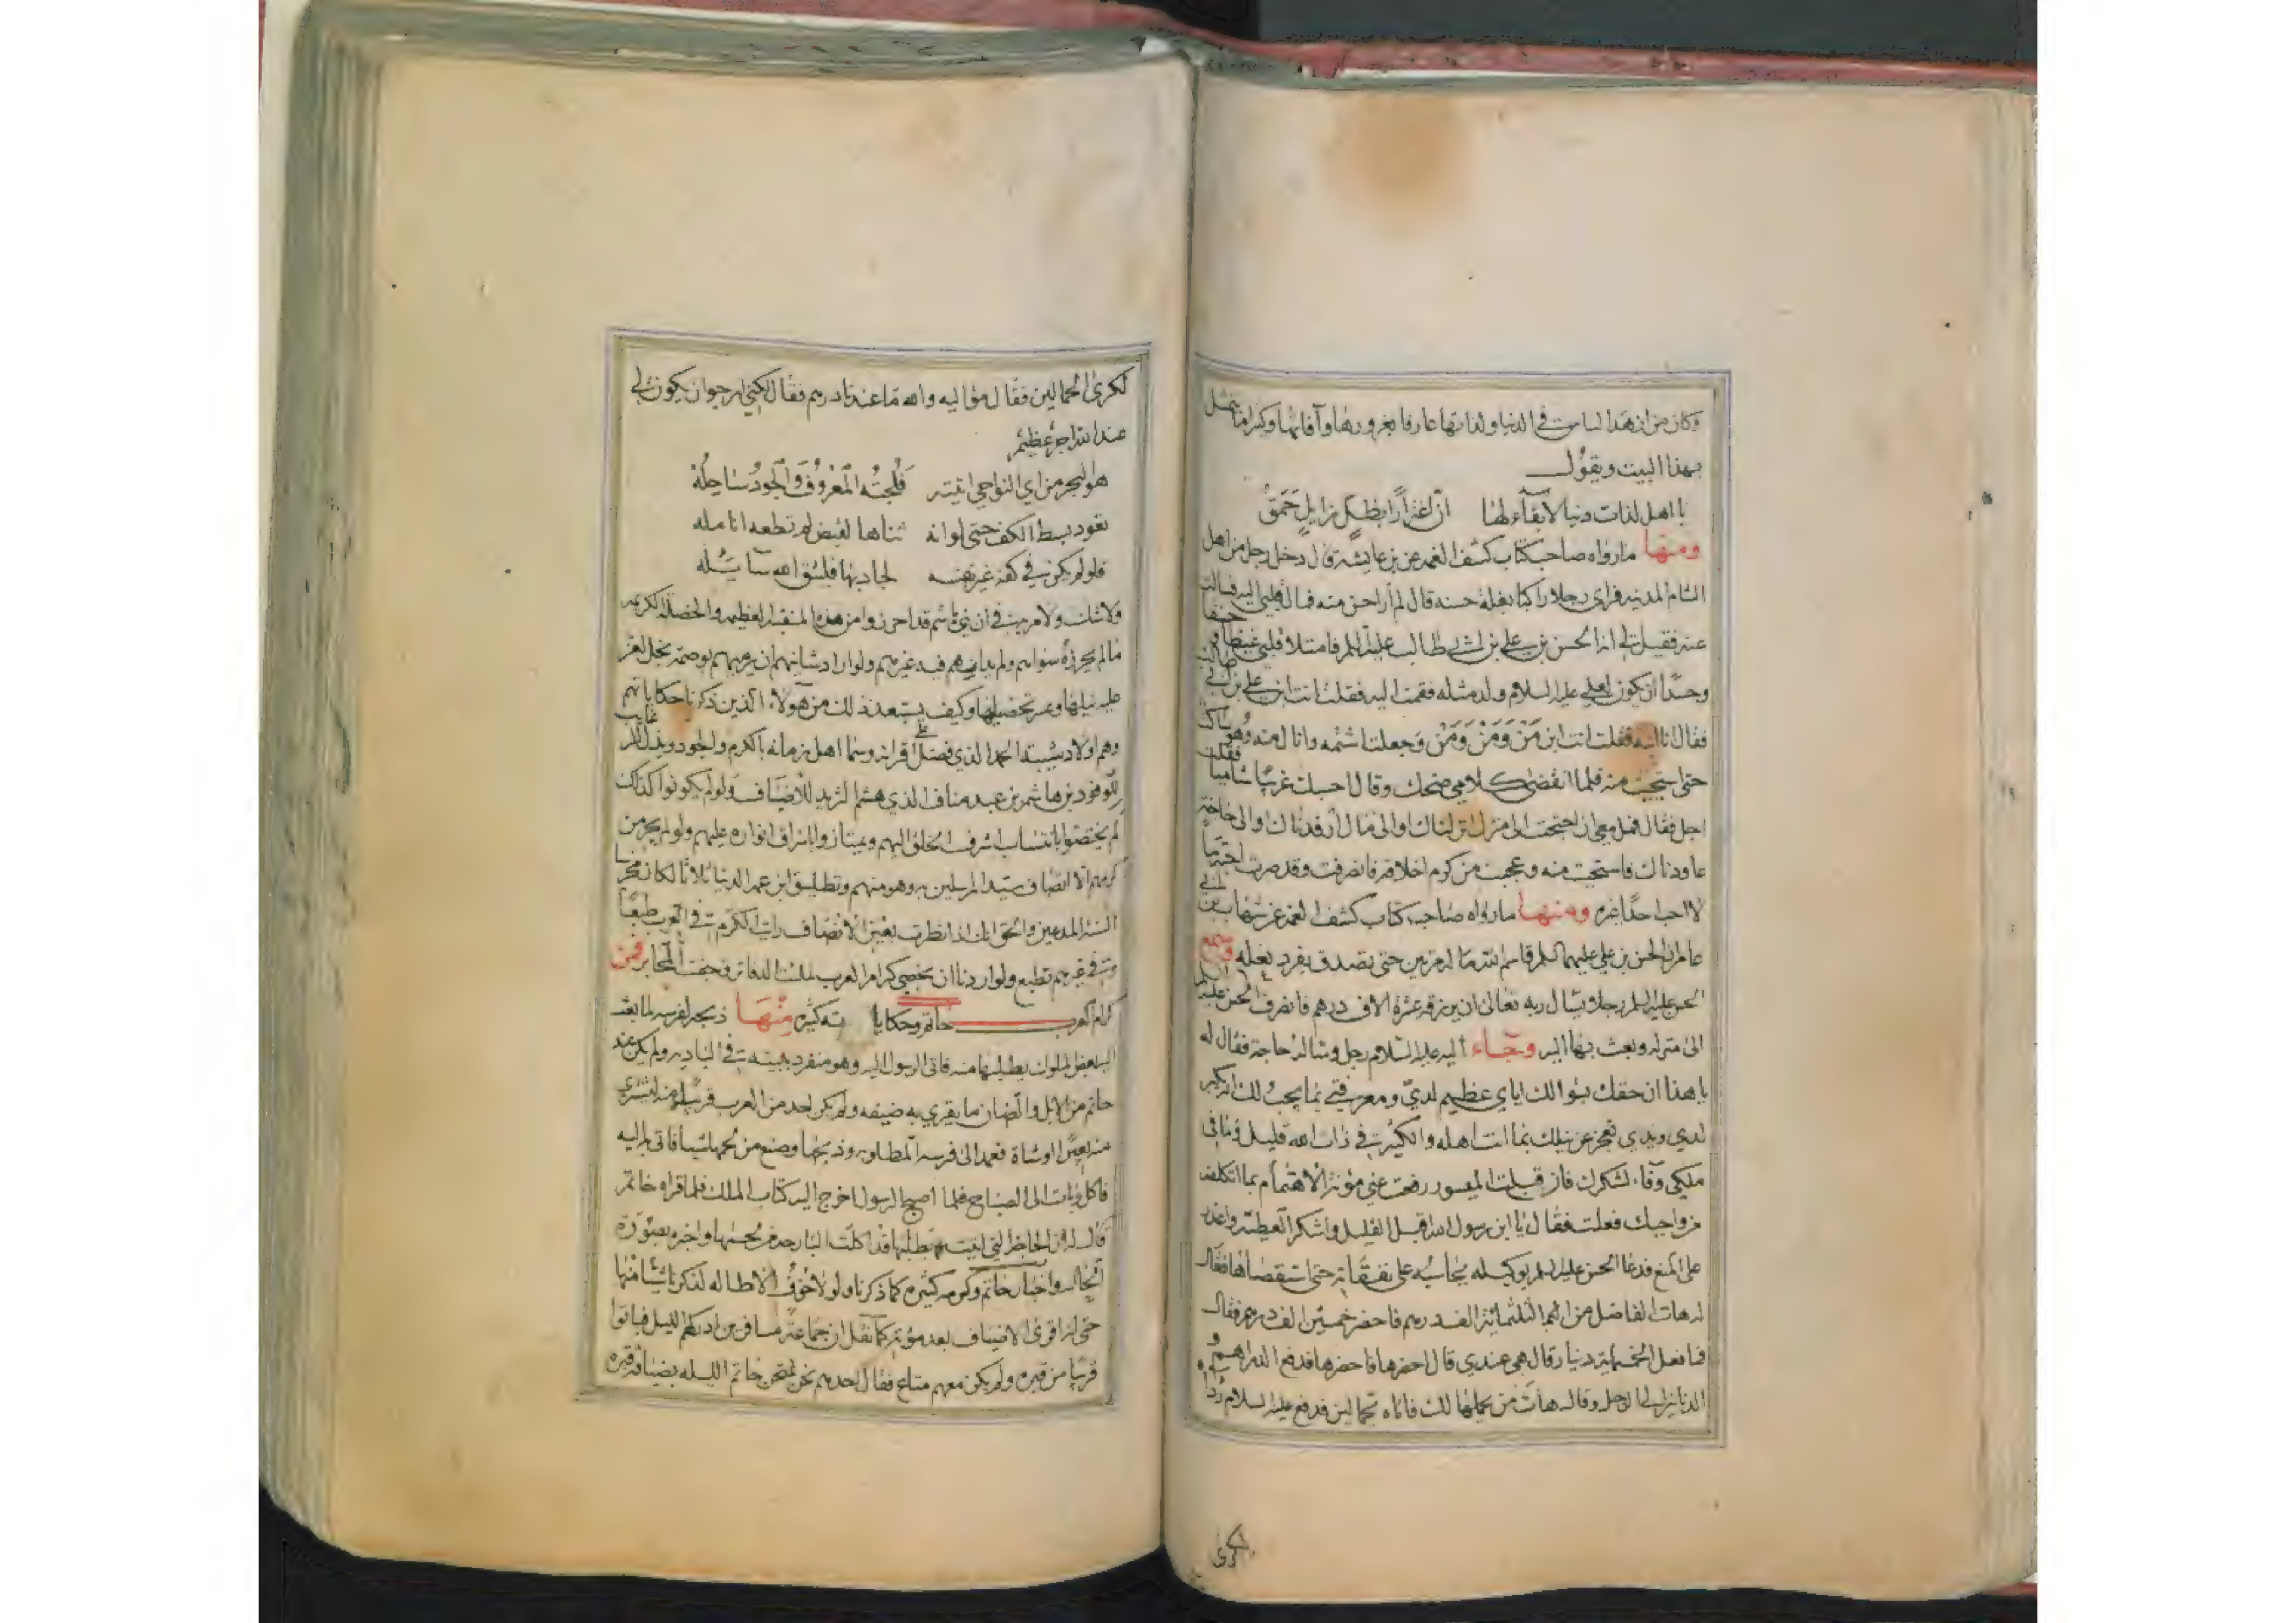 وكان من ازهد الناس في الدنيا ولذاتها عارفا بغرورها وآفاتها وكثيرا ما يتمثل
بهذا البيت ويقول
يا اهل لذات دنيا لا بقاء لها ان اغترارا بظل زايل حمق
ومنها ما رواه صاحب كتاب كشف الغمه عن بن عايشه قال دخل رجل من اهل
الشام المدينه فراى رجلا راكبا بغلة حسنه قال لم ار احسن منه فمال قلبي اليه فسالت
عنه فقيل لي انه الحسن بن علي بن ابي طالب عليه السلم فامتلا قلبي غيظا وحنقا
وحسدا ان يكون لعلي عليه السلام ولد مثله فقمت اليه فقلت انت ابن علي بن ابي طالب
فقال انا ابنه فقلت انت ابن من ومن ومن وجعلت اشتمه وانال منه وهو ساكت
حتى استحيت منه فلما انقضى كلامي ضحك وقال احسبك غريبا شاميا فقلت
اجل فقال فمل معي ان احتجت الى منزل انزلناك او الى مال ارفدناك او الى حاجة
عاوناك فاستحيت منه وعجبت من كرم اخلاقه فانصرفت وقد صرت احبه ما
لا احب احدا غيره ومنها ما رواه صاحب كتاب كشف الغمه عن شهاب بن ابي
عامر ان الحسن بن علي عليهما السلم قاسم الله ماله مرتين حتى تصدق بفرد نعله وسمع
الحسن عليه السلم رجلا يسال ربه تعالى ان يرزقه عشرة الاف درهم فانصرف الحسن عليه السلم
الى منزله وبعث بها اليه وجاء اليه عليه السلام رجل وساله حاجة فقال له
يا هذا ان حقك بسوالك اياي عظيم لدي ومعرفتي بما يجب لك تكبر
لدي ويدي تعجز عن نيلك بما انت اهله والكثير في ذات الله قليل وما في
ملكي وفاء لشكرك فان قبلت الميسور رفعت عني مؤنة الاهتمام بما اتكلفه
من واجبك فعلت فقال يا ابن رسول الله اقبل القليل واشكر العطية واعذر
على المنع فدعا الحسن عليه السلم بوكيله يحاسبه على نفقاته حتى استقصاها فقال
له هات الفاضل من الثلثمائة الف درهم فاحضر خمسين الف درهم فقال
فما فعل الخمسمائة دينار قال هي عندي قال احضرها فاحضرها فدفع الدراهم و
الدنانير الى الرجل وقال هات من يحملها لك فاتاه بحمالين فدفع عليه السلام رداه
لكرى
لكرى الحمالين فقال مواليه والله ما عندنا درهم فقال لكني ارجو ان يكون لي
عند الله اجر عظيم
هو البحر من اي النواحي اتيته فلجته المعروف والجود ساحله
تعود بسط الكف حتى لو انه ثناها لقبض لم تطعه انامله
فلو لم يكن في كفه غير نفسه لجاد بها فليتق الله سائله
ولا شك ولا مريه في ان بني هاشم قد احرزوا من هذه المنقبه العظيمه والخصله الكريمه
ما لم يحرزه سواهم ولم يدانهم فيه غيرهم ولو اراد شانيهم ان يرميهم بوصمة بخل لعز
عليه نيلها وعسر تحصيلها وكيف يستبعد ذلك من هولاء الذين ذكرنا حكاياتهم
وهم اولاد شيبة الحمد الذي فضل على اقرانه وسما اهل زمانه بالكرم والجود وبذل
للوفود بن هاشم بن عبد مناف الذي هشم الثريد للاضياف ولو لم يكونوا كذلك
لم يختصوا بانتساب اشرف الخلق اليهم ويمتازوا باشراق انواره عليهم ولو لم يحز من
كرمهم الا اتصاف سيد المرسلين به وهو منهم وتطليق ابن عمه الدنيا ثلاثا لكان مخرسا
السنة المدعين والحق انك اذا نظرت بعين الانصاف رايت الكرم في العرب طبعا
وفي غيرهم تطبع ولو اردنا ان نحصي كرام العرب لملئت الدفاتر وجفت المحابر فمن
كرام العرب حاتم وحكاياته كثيره منها ذبحه لفرسه لما بعث
اليه بعض الملوك يطلبها منه فاتى الرسول اليه وهو منفرد ببيته في الباديه ولم يكن عند
حاتم من الابل والضان ما يقري به ضيفه ولم يكن احد من العرب قريبا منه ليشتري
منه بعيرا او شاة فعمد الى فرسه المطلوبه وذبحها وصنع من لحمها شيا فاتى به اليه
فاكل وبات الى الصباح فلما اصبح الرسول اخرج اليه كتاب الملك فلما قراه حاتم
قال له ان الحاجة التي اتيت تطلبها قد اكلت البارحه من لحمها واخبره بصورة
الحال واخبار حاتم وكرمه كثيره كما ذكرنا ولولا خوف الاطاله لذكرنا شيئا منها
حتى انه اقرى الاضياف بعد موته كما نقل ان جماعة مسافرين ادركهم الليل فباتوا
قريبا من قبره ولم يكن معهم متاع فقال احدهم نحن نمتحن حاتم الليله بضيافة قبره